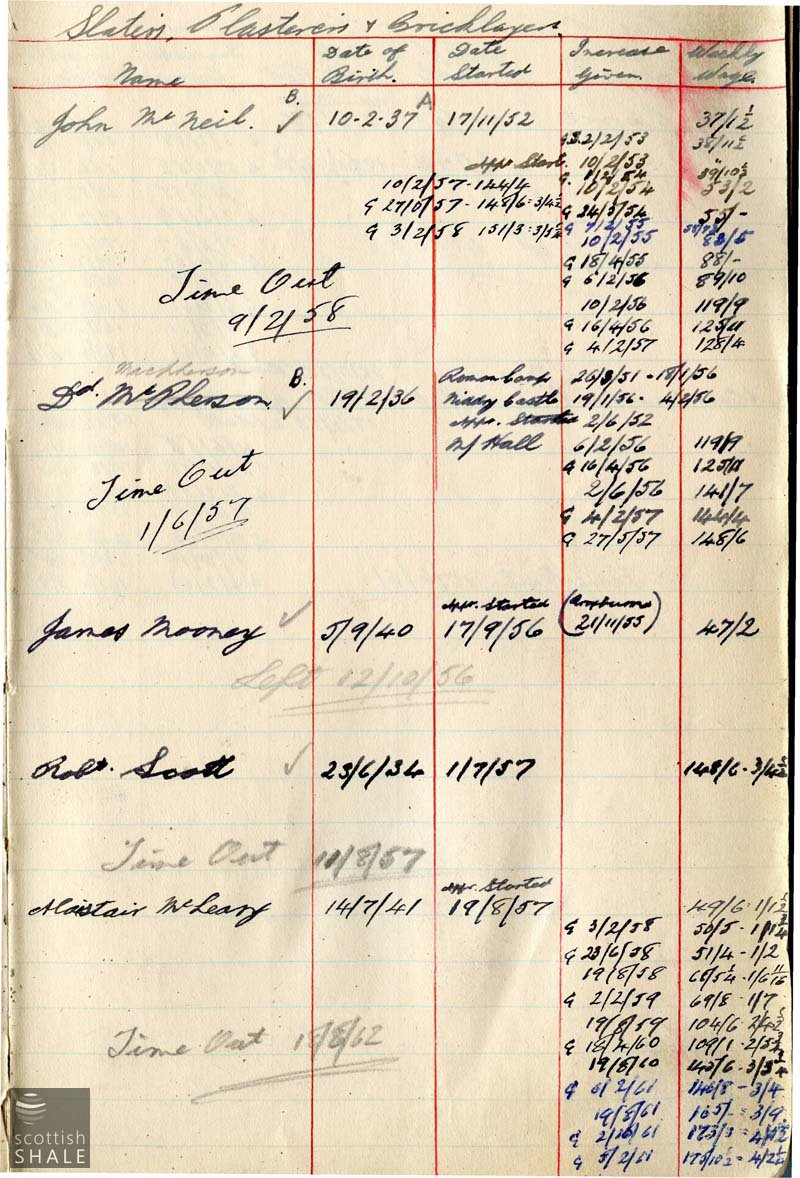 Slaters, Plasterers & Bricklayers.
Name Date of Birth. Date Started Increase Given. Weekly Wage.
John McNeil. B. ✓ 10-2-37 A 17/11/52 37/1½
G 2/2/53 38/11½
Appr. Start. 10/2/53
G. 1/2/54 39/10½
10/2/57 - 144/4 10/2/54 53/2
G 27/5/57 - 148/6 = 3/4½ G 24/3/54 55/-
G 3/2/58 151/3 = 3/5¼ G 7/2/55
10/2/55 85/5
G 18/4/55 88/-
Time Out G 6/2/56 89/10
9/2/58 10/2/56 119/9
G 16/4/56 125/11
G 4/2/57 128/4
MacPherson
Dd. McPherson. B. ✓ 19/2/36 Roman Camp 26/3/51 - 18/1/56
Niddry Castle 19/1/56 - 4/2/56
Appr. Started 2/6/52
W/ Hall 6/2/56 119/9
G 16/4/56 125/11
Time Out 2/6/56 141/7
1/6/57 G 4/2/57 144/4
G 27/5/57 148/6
Appr. Started
James Mooney ✓ 5/9/40 17/9/56 (21/11/55) 47/2
Left 12/10/56
Robt. Scott ✓ 23/6/34 1/7/57 148/6 - 3/4½
Time Out 11/8/57
Appr. Started
Alastair McLeary 14/7/41 19/8/57 49/6 - 1/1½
G 3/2/58 50/5 - 1/1¾
G 23/6/58 51/4 - 1/2
19/8/58 68/5½ - 1/6 11/16
G 2/2/59 69/8 - 1/7
19/8/59 104/6 - 2/4½
Time Out 18/8/62 G 18/4/60 109/1 - 2/5¾
19/8/60 143/6 - 3/5¼
G 6/2/61 146/8 - 3/4
19/8/61 165/- = 3/9
G 2/10/61 173/3 =
G 5/2/61 175/10½ = 4/2¼
scottish
SHALE